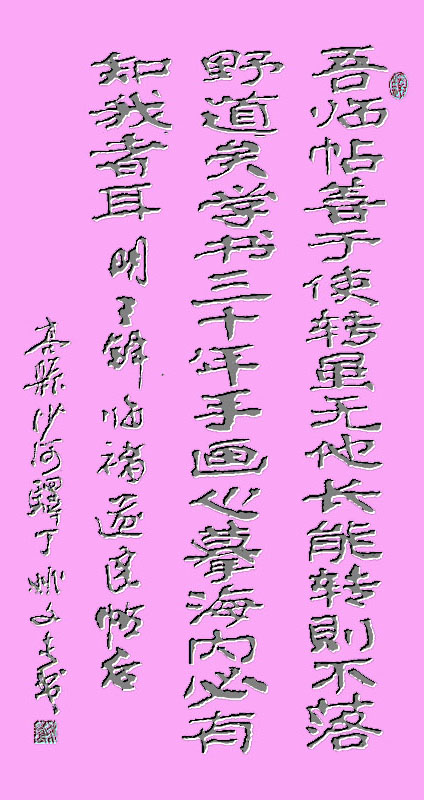 吾临帖善于使转虽无他长能转則不落
野道矣学书三十年手画心摹海内必有
知我者耳 明王鐸临褚遂良帖后
高县沙河驿丁姚文